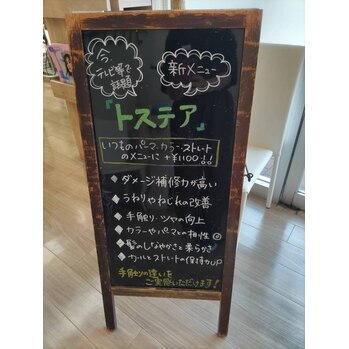 今
テレビ等で
話題
新メニュー
『トステア』
いつものパーマ、カラー、ストレート
のメニューに +¥1100!!
◆ ダメージ補修力が高い
◆ うねりやねじれの改善
◆ 手触り・ツヤの向上
◆ カラーやパーマとの相性◎
◆ 髪のしなやかさと柔らかさ
◆ カールとストレートの保持力UP
手触りの違いを
ご実感いただけます!